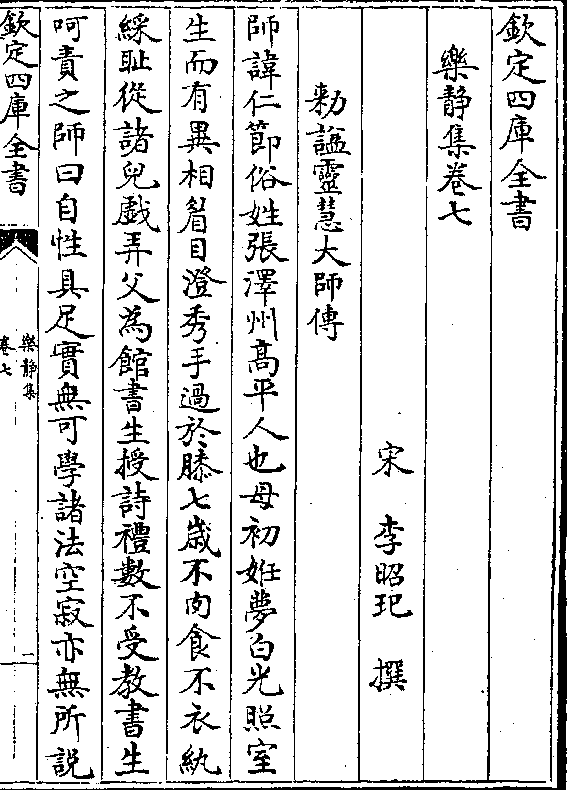 欽定四庫全書
樂静集卷七
宋 李昭玘 撰
勅諡靈慧大師傳
師諱仁節俗姓張澤州髙平人也母初姙夢白光照室
生而有異相眉目澄秀手過於膝七歳不肉食不衣紈
綵耻從諸兒戲弄父為館書生授詩禮數不受教書生
呵責之師曰自性具足實無可學諸法空寂亦無所説
欽定四庫全書
樂静集
卷七
一